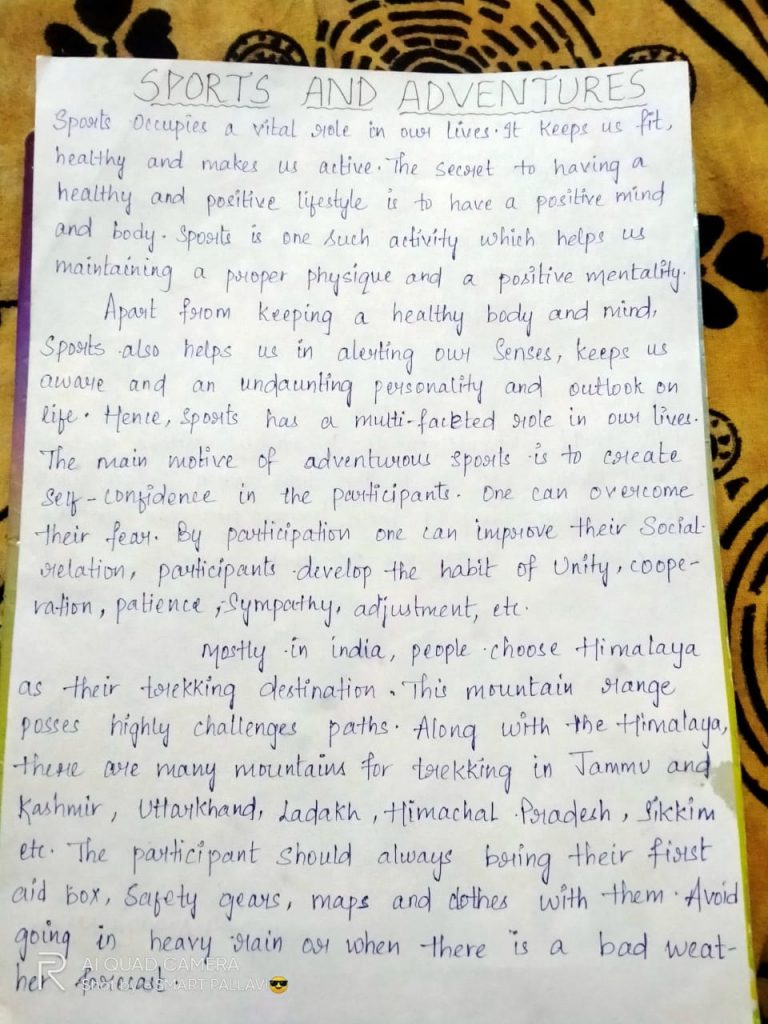 SPORTS AND ADVENTURES
Sports Occupies a vital role in our lives. It keeps us fit,
healthy and makes us active. The secret to having a
healthy and positive lifestyle is to have a positive mind
and body. Sports is one such activity which helps us
maintaining a proper physique and a positive mentality.
Apart from keeping a healthy body and mind,
Sports also helps us in alerting our Senses, keeps us
aware and an undaunting personality and outlook on
life. Hence, Sports has a multi-faceted role in our lives.
The main motive of adventurous sports is to create
self-confidence in the participants. One can overcome
their fear. By participation one can improve their Social-
relation, participants develop the habit of Unity, coope-
ration, patience, Sympathy, adjustment, etc.
Mostly in india, people choose Himalaya
as their trekking destination. This mountain range
posses highly challenges paths. Along with the Himalaya,
there are many mountains for trekking in Jammu and
Kashmir, Uttarkhand, Ladakh, Himachal Pradesh, Sikkim
etc. The participant should always bring their first
aid box, Safety gears, maps and clothes with them. Avoid
going in heavy rain or when there is a bad weat-
her forecast.
AI QUAD CAMERA
SMART PALLAV😎